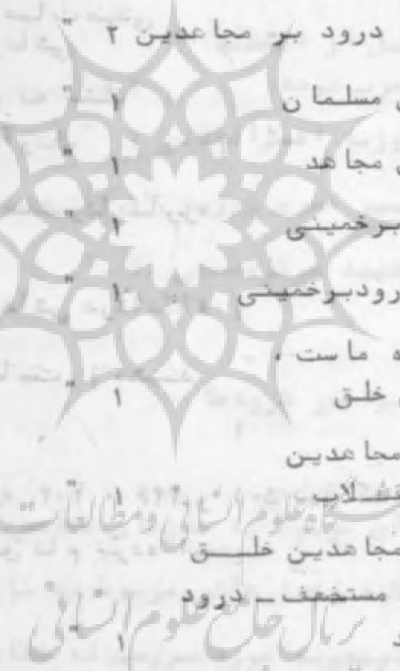 درود بر مجاهدین ۲ "
ن مسلمان ۱ "
ن مجاهد ۱ "
برخمینی ۱ "
رودبرخمینی ۱ "
ه ماست ،
ن خلق ۱ "
مجاهدین
نقلاب ۱ "
مجاهدین خلق
مستضعف ـ درود
د ۱ "
گاه علوم انسانی و مطالعات
رتال جامع علوم انسانی